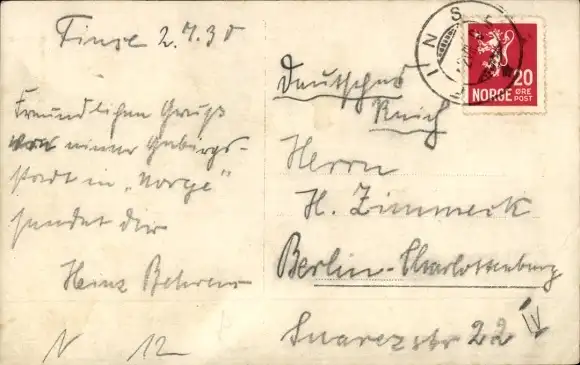 Finse 2.7.30
Freundlichen Gruß
von einer Gebirgs-
stadt in „Norge“
sendet dir
Heinz Behrens
N 12
FINSE
20
NORGE ØRE
POST
Deutsches
Reich
Herrn
H. Zimmeck
Berlin-Charlottenburg
Suarezstr 22
IV